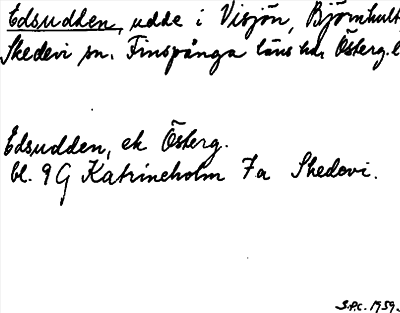 Edsudden, udde i Visjön, Björnhult,
Skedevi sn. Finspånga läns hd. Österg. l
Edsudden, ek Österg.
bl. 9G Katrineholm 7a Skedevi.
S.P.C. 1959.